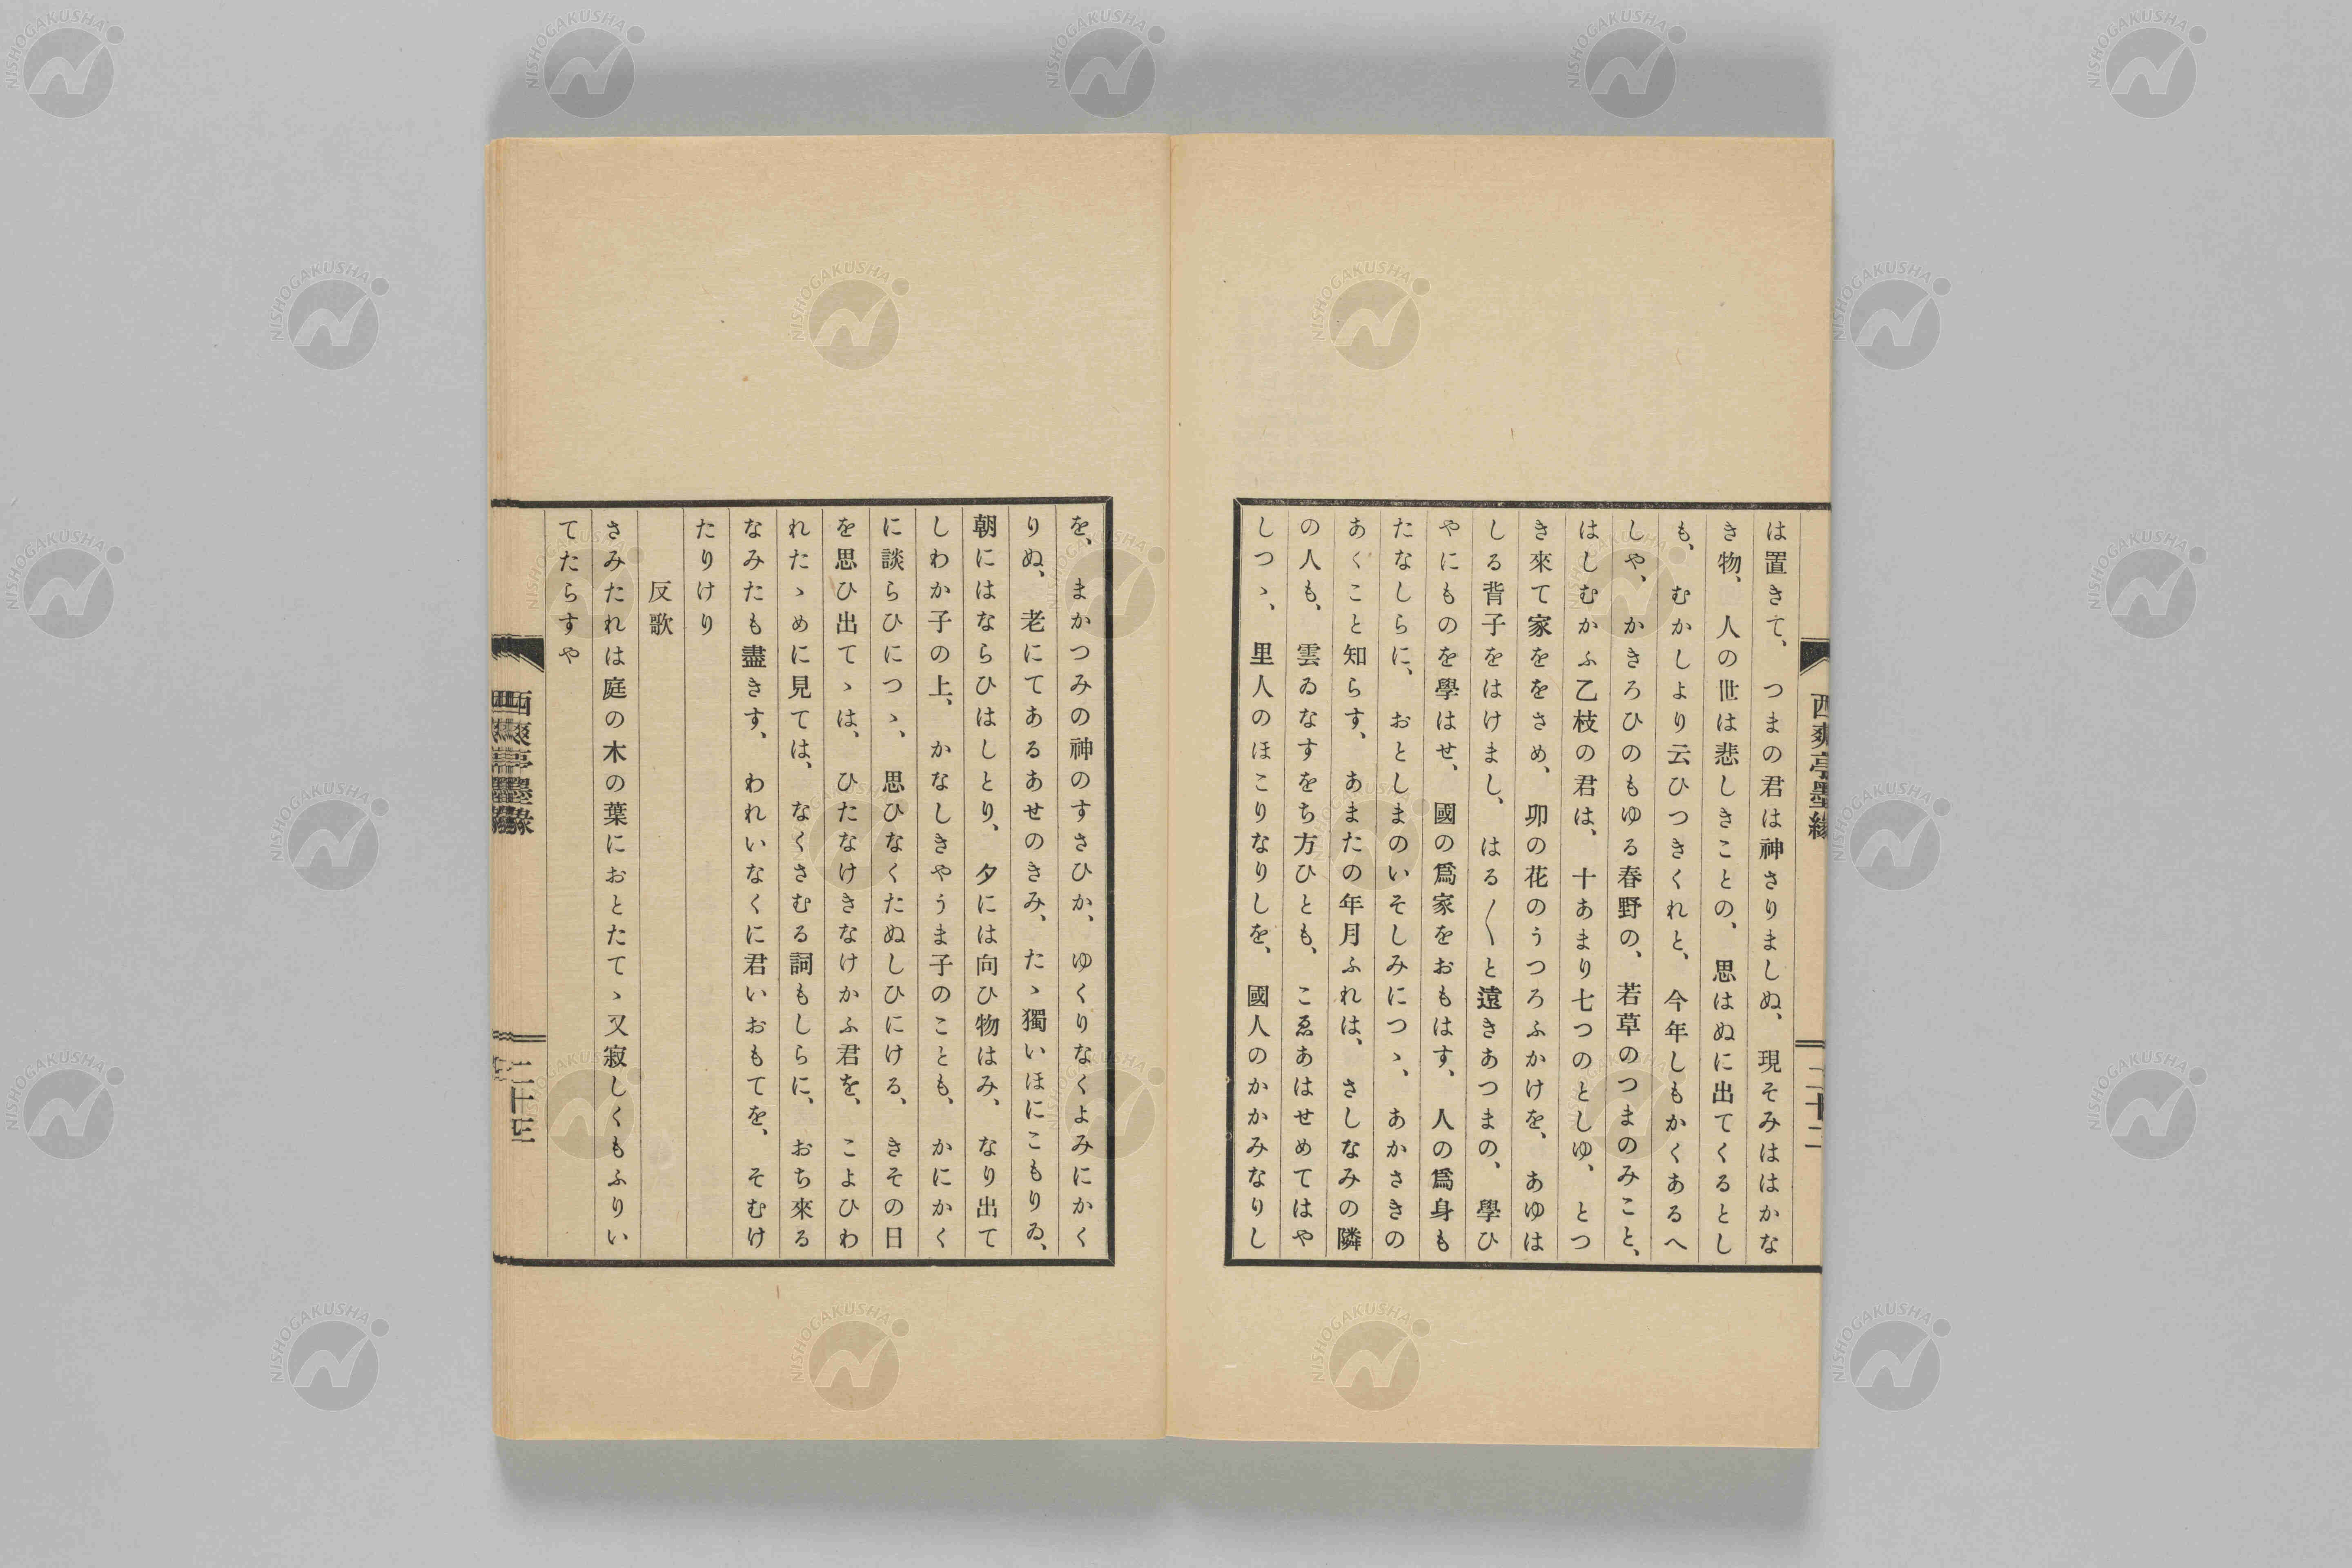 は置きて、つまの君は神さりましぬ、現そみははかな
き物、人の世は悲しきことの、思はぬに出てくるとし
も、むかしより云ひつきくれと、今年しもかくあるへ
しや、かきろひのもゆる春野の、若草のつまのみこと、
はしむかふ乙枝の君は、十あまり七つのとしゆ、とつ
き來て家ををさめ、卯の花のうつろふかけを、あゆは
しる背子をはけまし、はる〱と遠きあつまの、學ひ
やにものを學はせ、國の爲家をおもはす、人の爲身も
たなしらに、おとしまのいそしみにつゝ、あかさきの
あくこと知らす、あまたの年月ふれは、さしなみの隣
の人も、雲ゐなすをち方ひとも、こゑあはせめてはや
しつゝ、里人のほこりなりしを、國人のかかみなりし
を、まかつみの神のすさひか、ゆくりなくよみにかく
りぬ、老にてあるあせのきみ、たゝ獨いほにこもりゐ、
朝にはならひはしとり、夕には向ひ物はみ、なり出て
しわか子の上、かなしきやうま子のことも、かにかく
に談らひにつゝ、思ひなくたぬしひにける、きその日
を思ひ出てゝは、ひたなけきなけかふ君を、こよひわ
れたゝめに見ては、なくさむる詞もしらに、おち來る
なみたも盡きす、われいなくに君いおもてを、そむけ
たりけり
反歌
さみたれは庭の木の葉におとたてゝ又寂しくもふりい
てたらすや
西爽亭墨縁
二十三
西爽亭墨縁
二十二
NISHOGAKUSHA